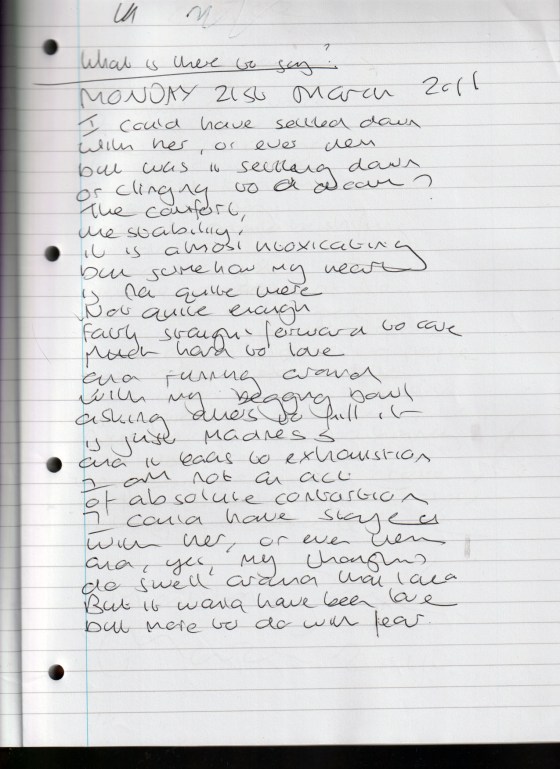 What is there to say?
MONDAY 21st March 2011
I could have settled down
with her, or even them
but was it settling down
or clinging to a dream?
The comfort,
the stability,
it is almost intoxicating
but somehow my heart
is not quite there
Not quite enough
Fairly straight forward to care
Much hard to love
and running around
with my begging bowl
asking others to fill it
is just madness
and it leads to exhaustion
I am not an act
of absolute contortion
I could have stayed
with her, or even them
and, yes, my thoughts
do swell around that idea
But it would have been love
but more to do with fear